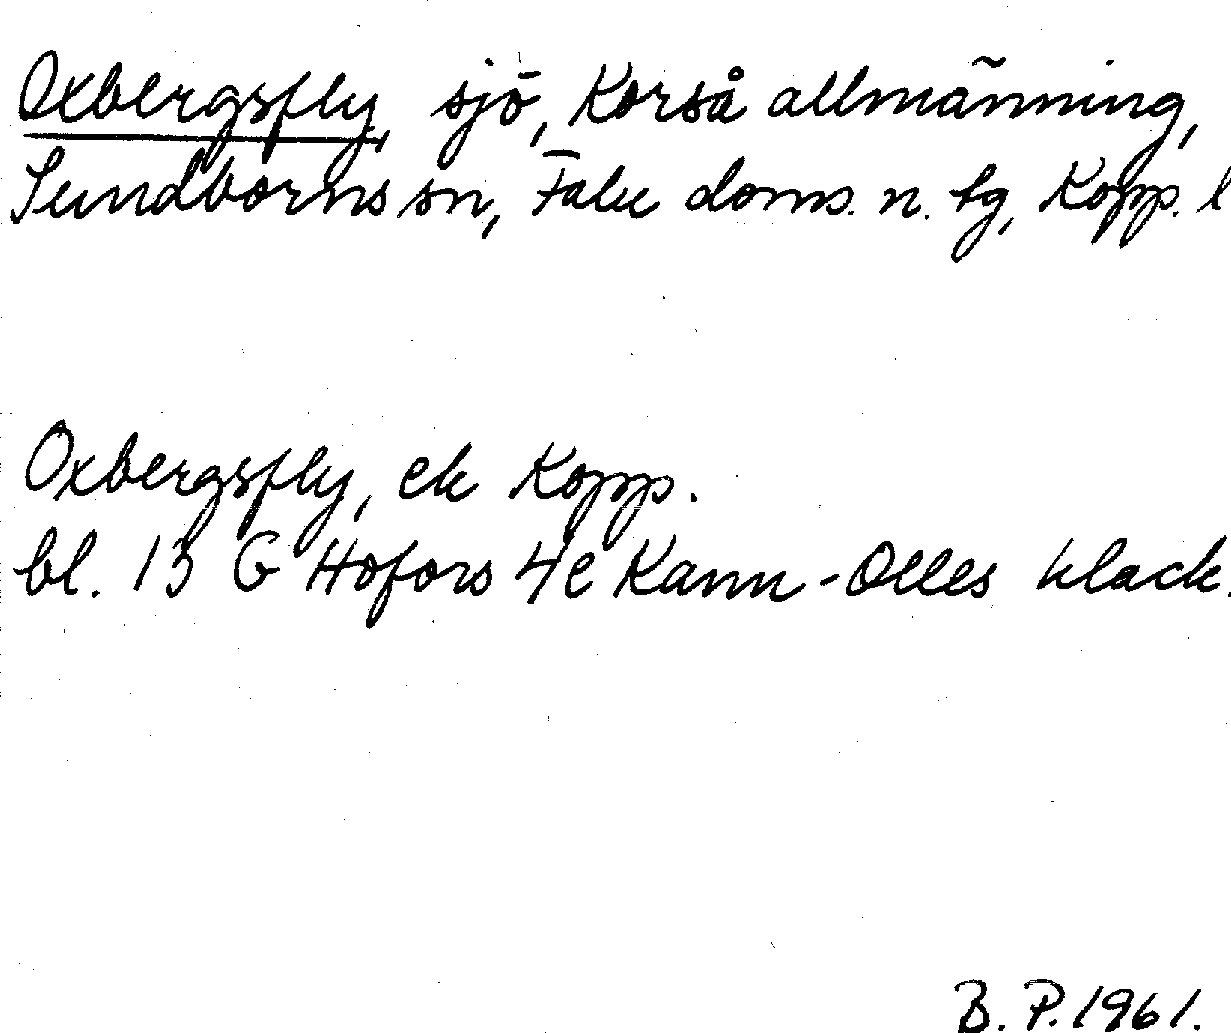 Oxbergsfly, sjö, Korså allmänning,
Sundborns sn, Falu doms. n. tg, Kopp. l
Oxbergsfly, ek Kopp.
bl. 13 G Hofors 4c Kann-Olles klack.
B. P. 1961.